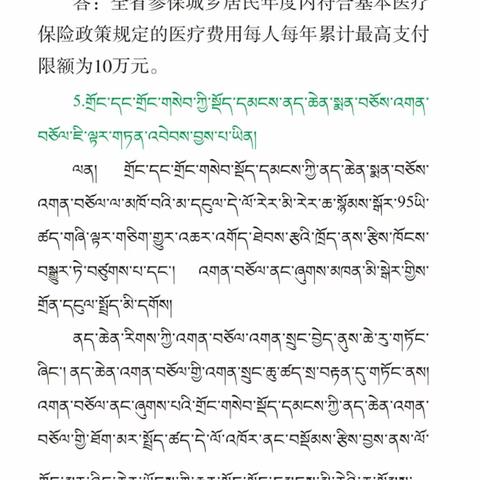 答：全省参保城乡居民年度内符合基本医疗
保险政策规定的医疗费用每人每年累计最高支付
限额为10万元。
5.གྲོང་དང་གྲོང་གསེབ་ཀྱི་སྡོད་དམངས་ནད་ཆེན་སྨན་བཅོས་འགན་
བཅོལ་ཇི་ལྟར་གཏན་འབེབས་བྱས་པ་ཡིན།
ལན། གྲོང་དང་གྲོང་གསེབ་སྡོད་དམངས་ཀྱི་ནད་ཆེན་སྨན་བཅོས་
འགན་བཅོལ་ལ་མཁོ་བའི་མ་དངུལ་དེ་ལོ་རེར་མི་རེར་ཆ་སྙོམས་སྒོར་95ཡི་
ཚད་གཞི་ལྟར་གཅིག་གྱུར་འཆར་འགོད་ཐེབས་རྩའི་ཁྲོད་ནས་རྩིས་ཁོངས་
བསྒྱུར་ཏེ་བཙུགས་པ་དང་། འགན་བཅོལ་ནང་ཞུགས་མཁན་མི་སྒེར་གྱིས་
གྲོན་དངུལ་སྤྲོད་མི་དགོས།
ནད་ཆེན་རིགས་ཀྱི་འགན་བཅོལ་འགན་སྲུང་བྱེད་ནུས་ཆེ་རུ་གཏོང་
ཞིང་། ནད་ཆེན་འགན་བཅོལ་གྱི་འགན་སྲུང་ཆུ་ཚད་སྲ་བརྟན་དུ་གཏོང་ནས།
འགན་བཅོལ་ནང་ཞུགས་པའི་གྲོང་གསེབ་སྡོད་དམངས་ཀྱི་ནད་ཆེན་འགན་
བཅོལ་གྱི་ཐོག་མར་སྤྲོད་ཚད་དེ་ལོ་འཁོར་ནང་བསྡོམས་རྩིས་བྱས་ནས་ལོ་